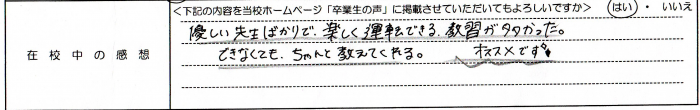 <下記の内容を当校ホームページ「卒業生の声」に掲載させていただいてもよろしいですか> はい ・ いいえ
在校中の感想
優しい先生ばかりで、楽しく運転できる教習が多かった。
できなくても、ちゃんと教えてくれる。 オススメです